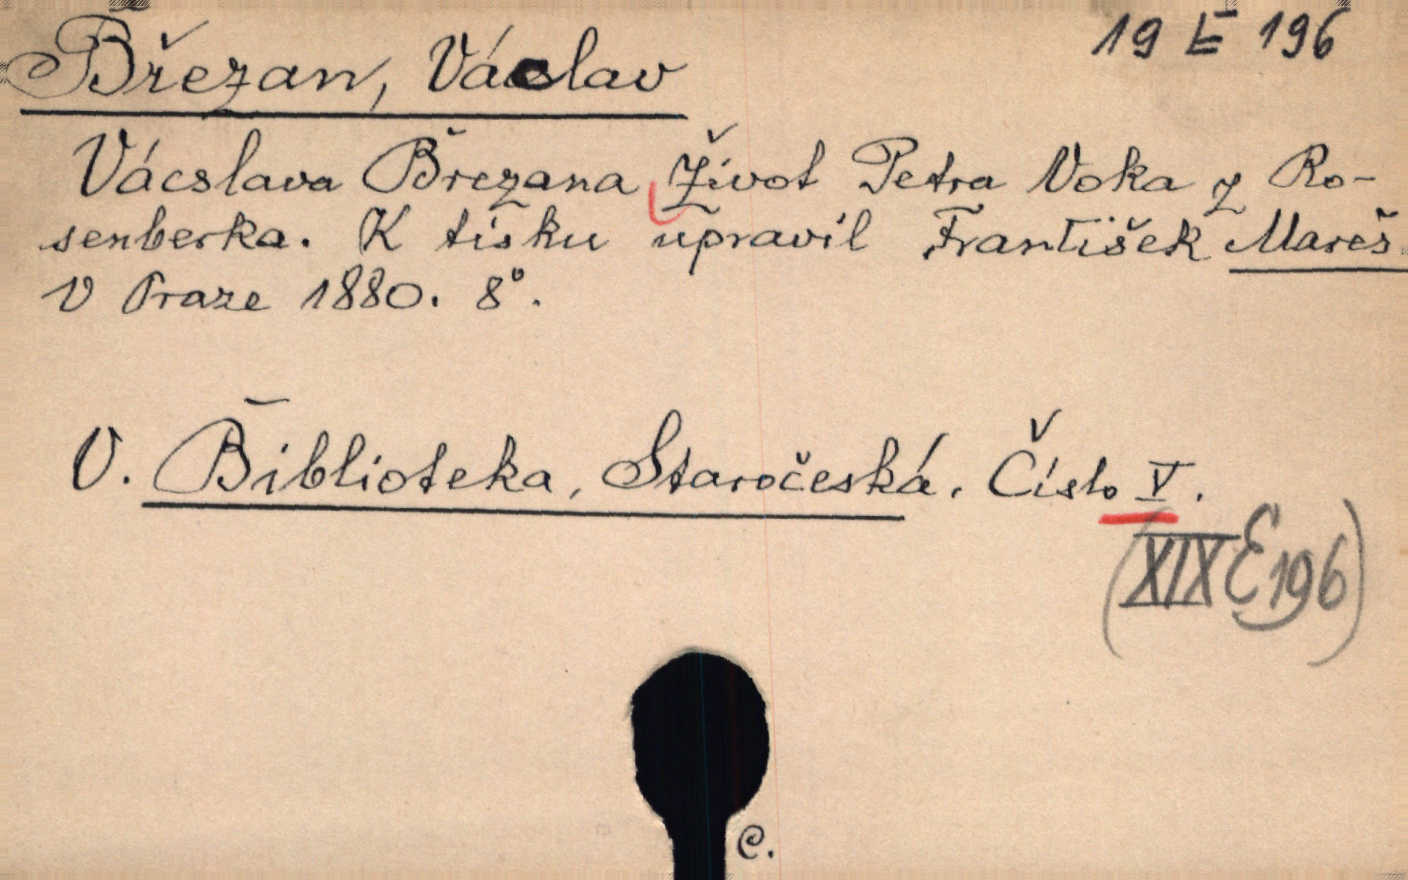 19 E 196
Březan, Václav
Vácslava Březana Život Petra Voka z Ro-
senberka. K tisku upravil František Mareš.
V Praze 1880. 8°.
V. Biblioteka, Staročeská. Číslo V.
(XIX E 196)
C.